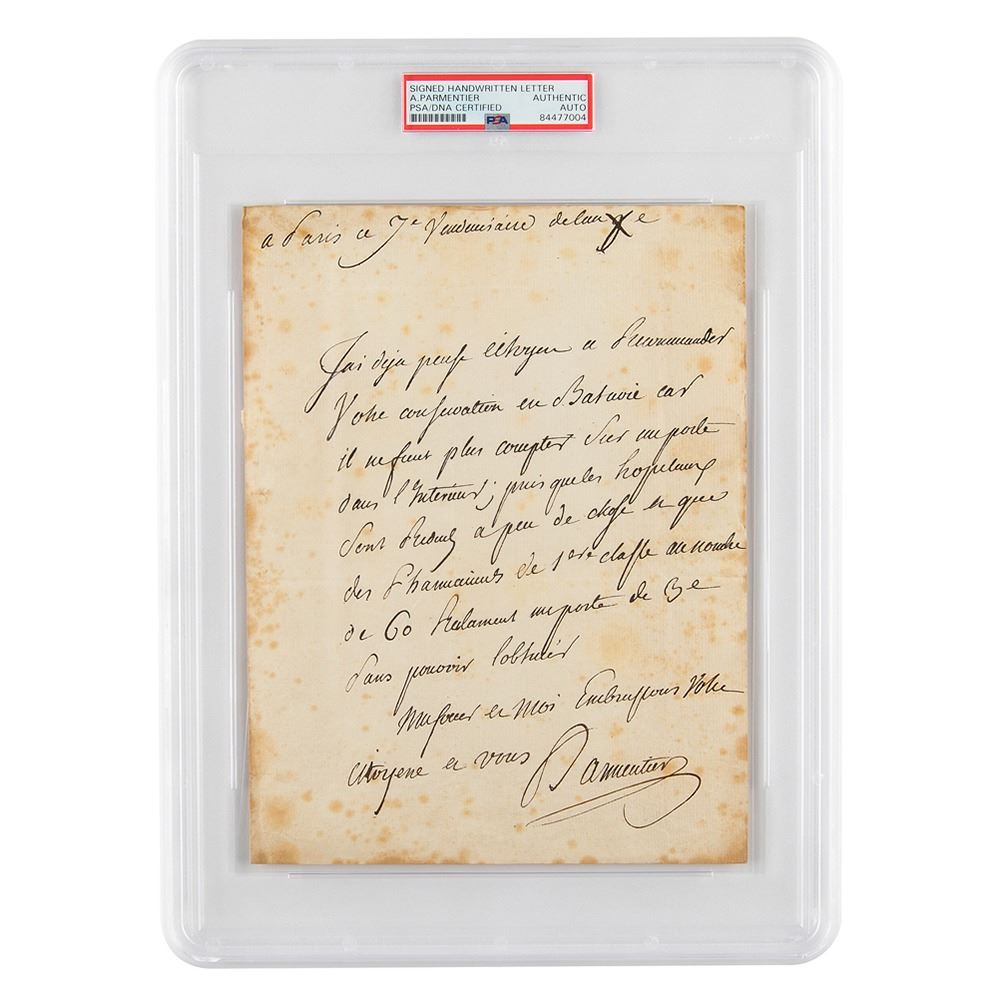 SIGNED HANDWRITTEN LETTER
A.PARMENTIER AUTHENTIC
PSA/DNA CERTIFIED AUTO
PSA 84477004
a Paris ce 7e Vendemiaire de lan
Jai deja pensé Citoyen a Recommander
Votre conservation en Batavie car
il ne faut plus compter Sur un poste
dans l'Interieur; puis que les hopitaux
Sont Reduits a peu de chose et que
des Pharmaciens de 1ere classe au nombre
de 60 Reclament un poste de 3e
Sans pouvoir lobtenir
Ma soeur et Moi Embrassons Votre
Citoyene et vous Parmentier